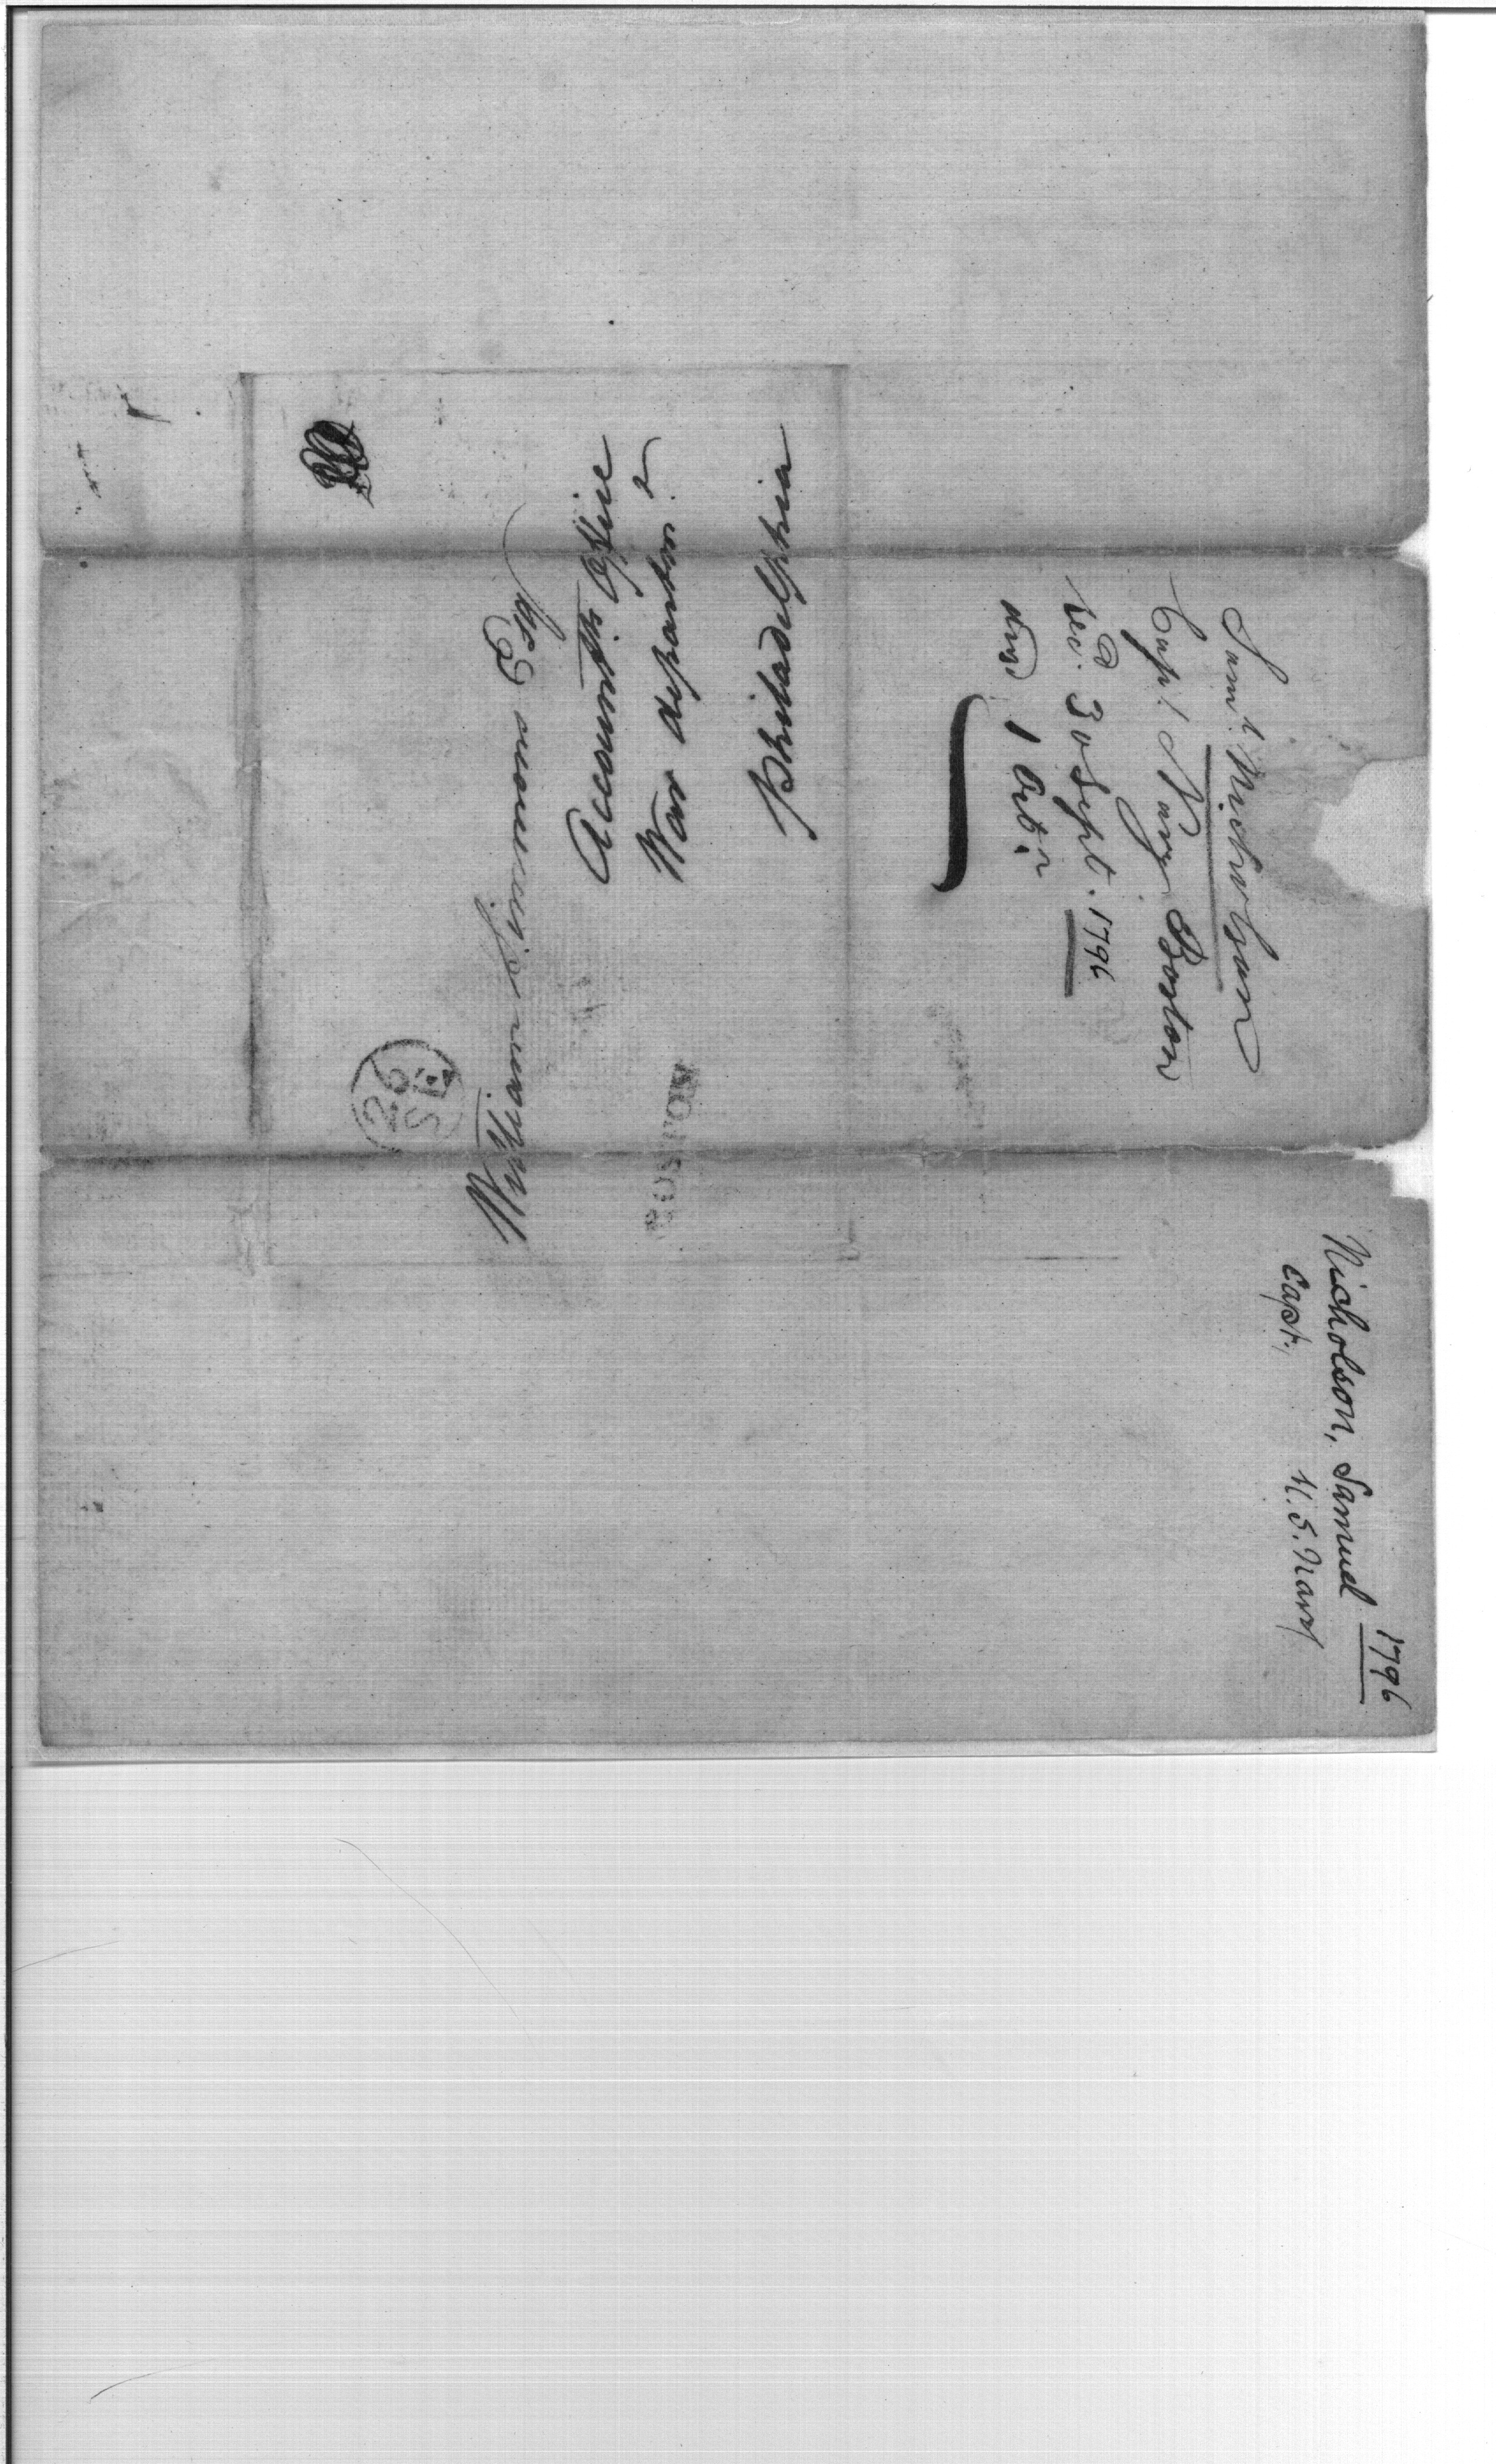 1796
Nicholson, Samuel
Capt. U.S. Navy
Saml. Nicholson
Capt. Navy Boston
Recd. 30 Sept. 1796
ansd 1 Octr.
William Simmons Esqr
Accountts. Office
War departmt.
Philadelphia
BOSTON
26
SE